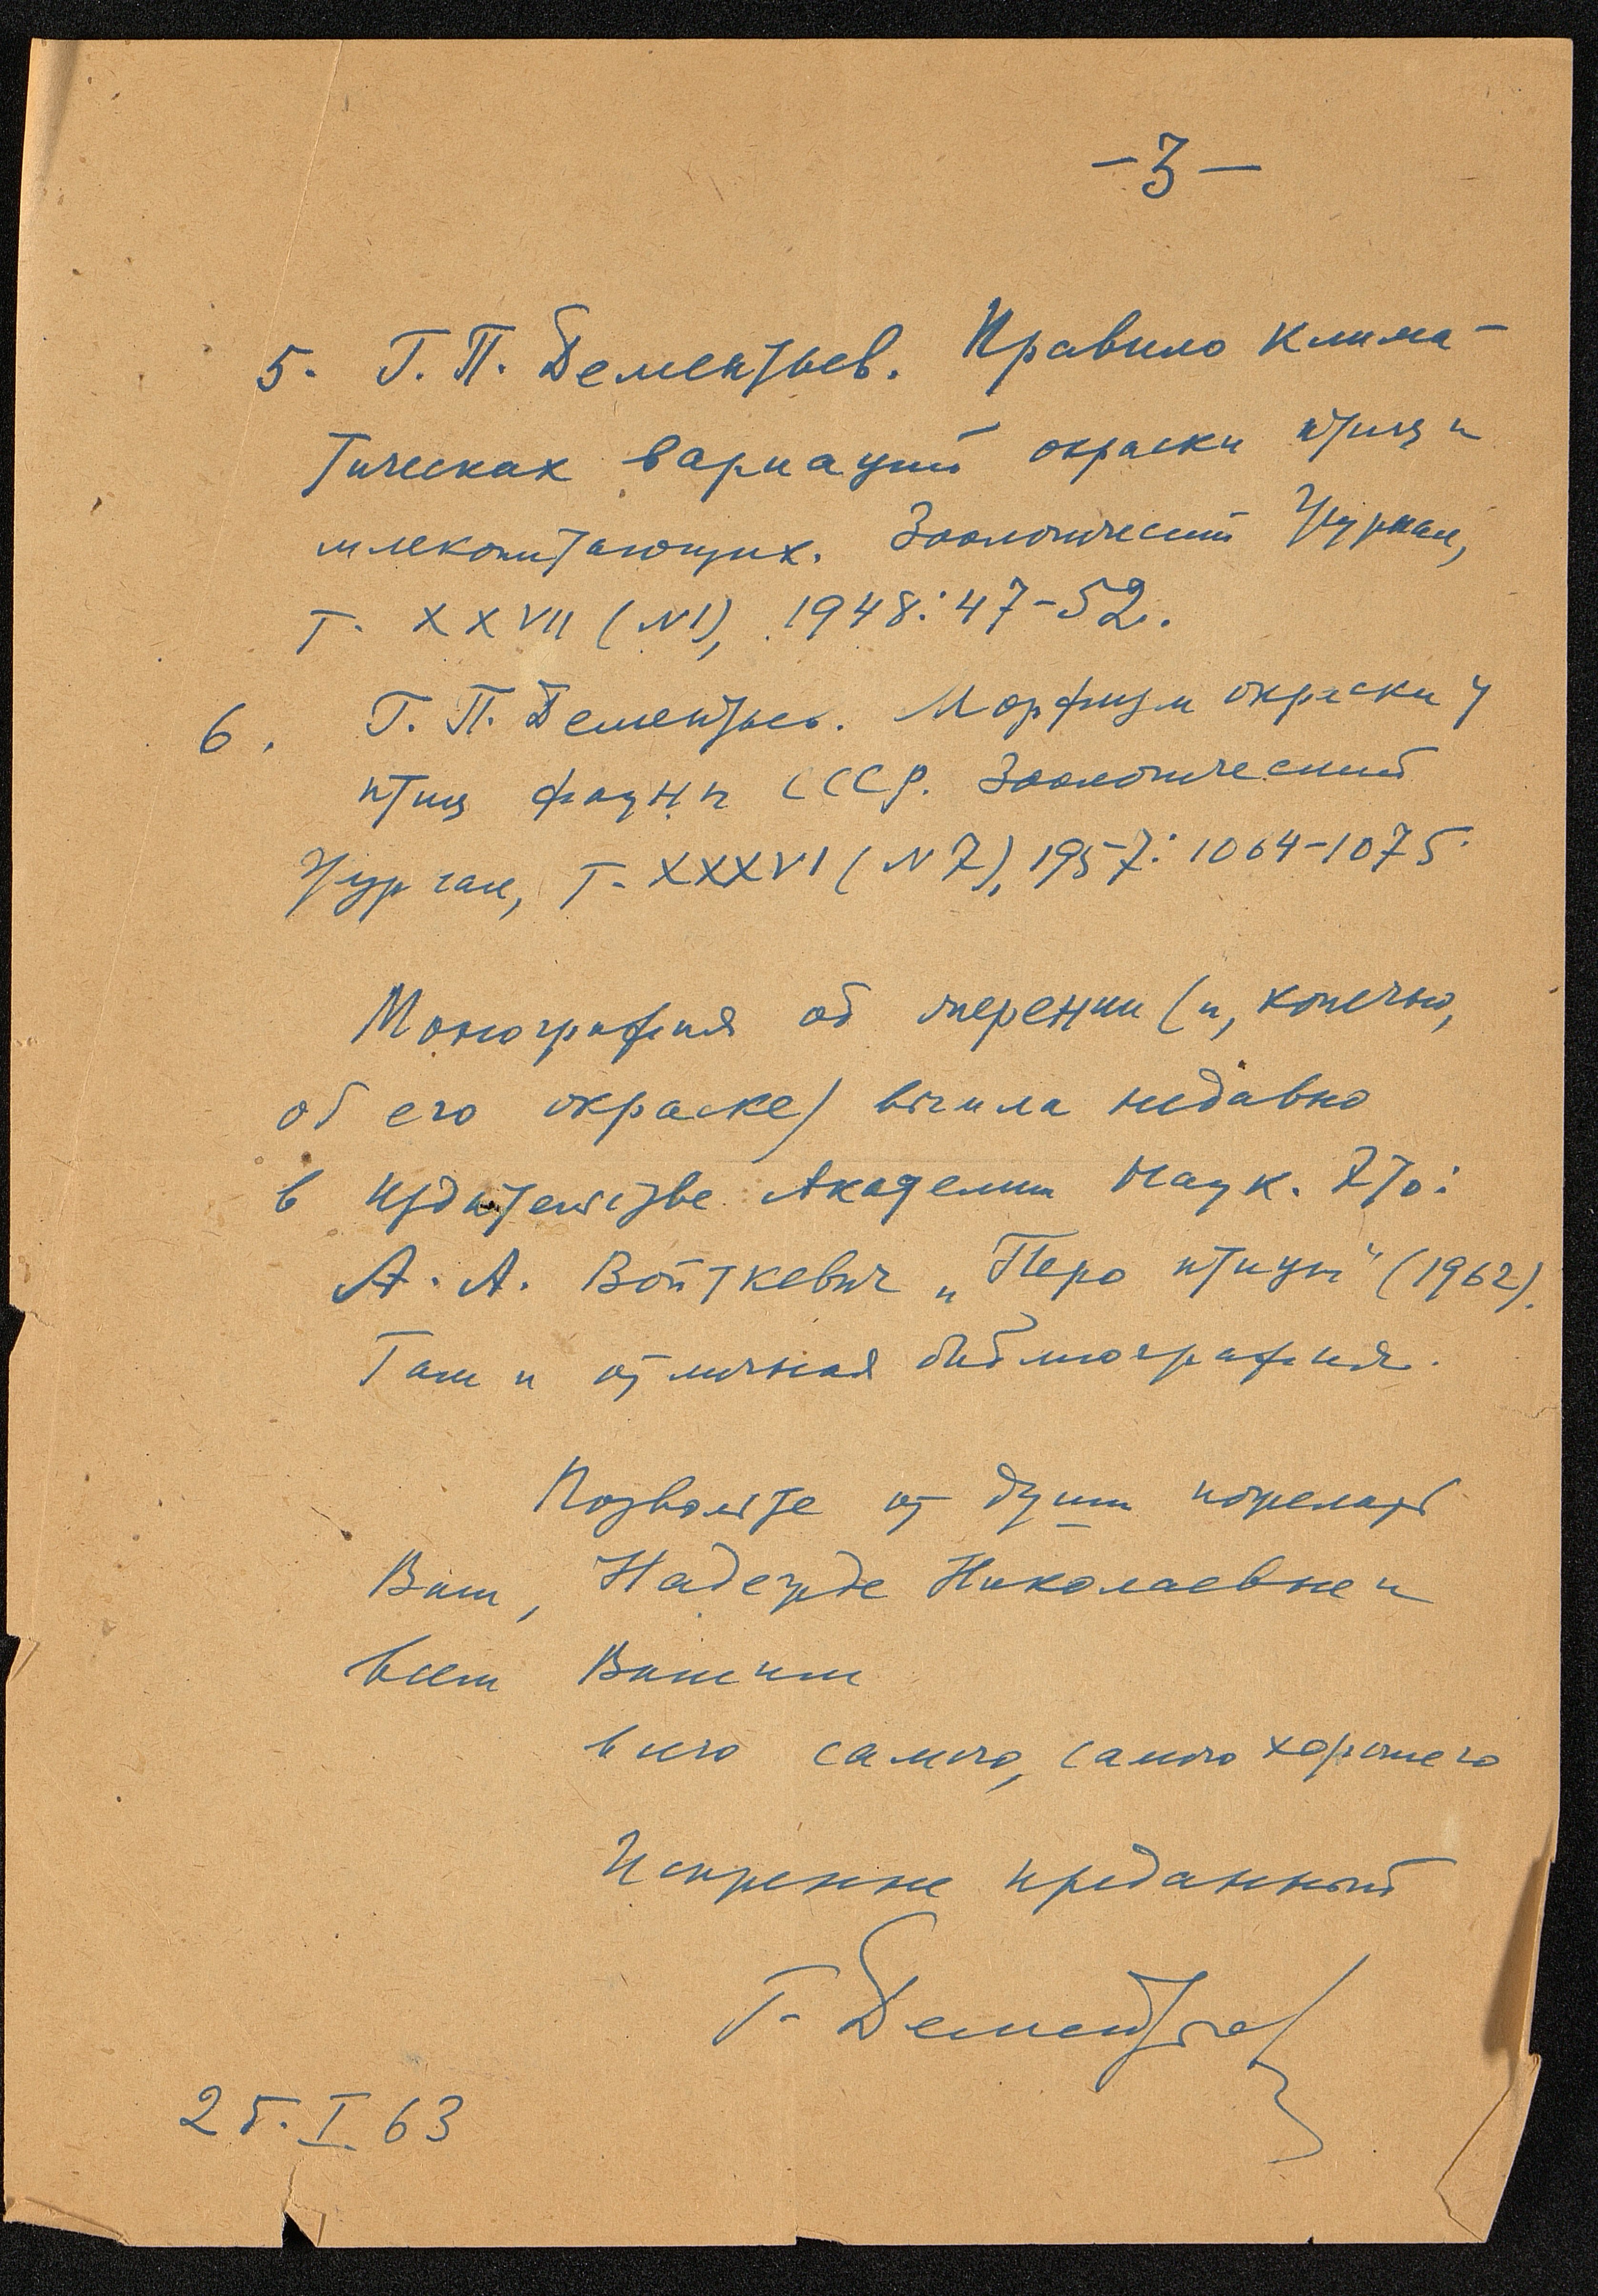 -3-
5. Г. П. Дементьев. Правило клима-
тических вариаций окраски птиц и
млекопитающих. Зоологический Журнал,
т. XXVII (N1), 1948: 47-52.
6. Г. П. Дементьев. Морфизм окраски у
птиц фауны СССР. Зоологический
Журнал, т. XXXVI (N7), 1957: 1064-1075.
Монография об оперении (и, конечно,
об его окраске) вышла недавно
в Издательстве Академии Наук. Это:
А. А. Войткевич „Перо птицы" (1962).
Там и отличная библиография.
Позвольте от души пожелать
Вам, Надежде Николаевне и
всем Вашим
всего самого, самого хорошего
Искренне преданный
Г. Дементьев
25. I. 63